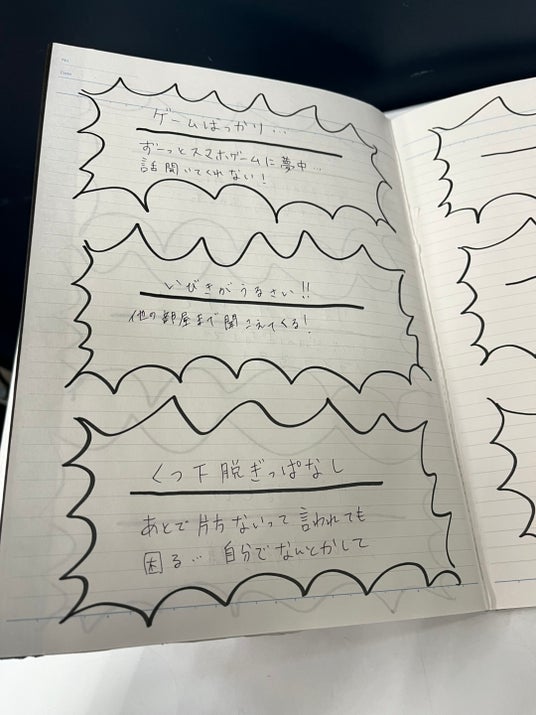 ゲームばっかり…
ずーっとスマホゲームに夢中…
話聞いてくれない!
いびきがうるさい!!
他の部屋まで聞こえてくる!
くつ下脱ぎっぱなし
あとで片ちないって言われても
困る… 自分でなんとかして